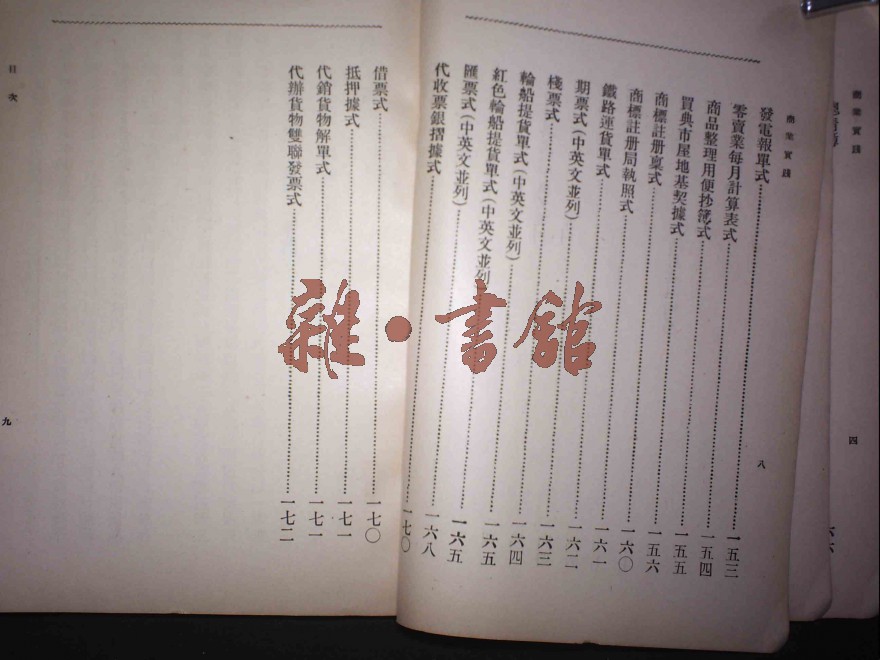 商業實踐
四
商業實踐
八
發電報單式…………一五三
零賣業每月計算表式…………一五四
商品整理用便抄簿式…………一五五
買典市屋地基契據式…………一五六
商標註册稟式…………一六〇
商標註册局執照式…………一六一
鐵路運貨單式…………一六二
期票式(中英文並列)…………一六三
棧票式…………一六四
輪船提貨單式(中英文並列)…………一六五
紅色輪船提貨單式(中英文並列)…………一六五
匯票式(中英文並列)…………一六八
代收票銀摺據式…………一七〇
借票式…………一七〇
抵押據式…………一七一
代銷貨物解單式…………一七一
代辦貨物雙聯發票式…………一七二
目次
九
雜·書館